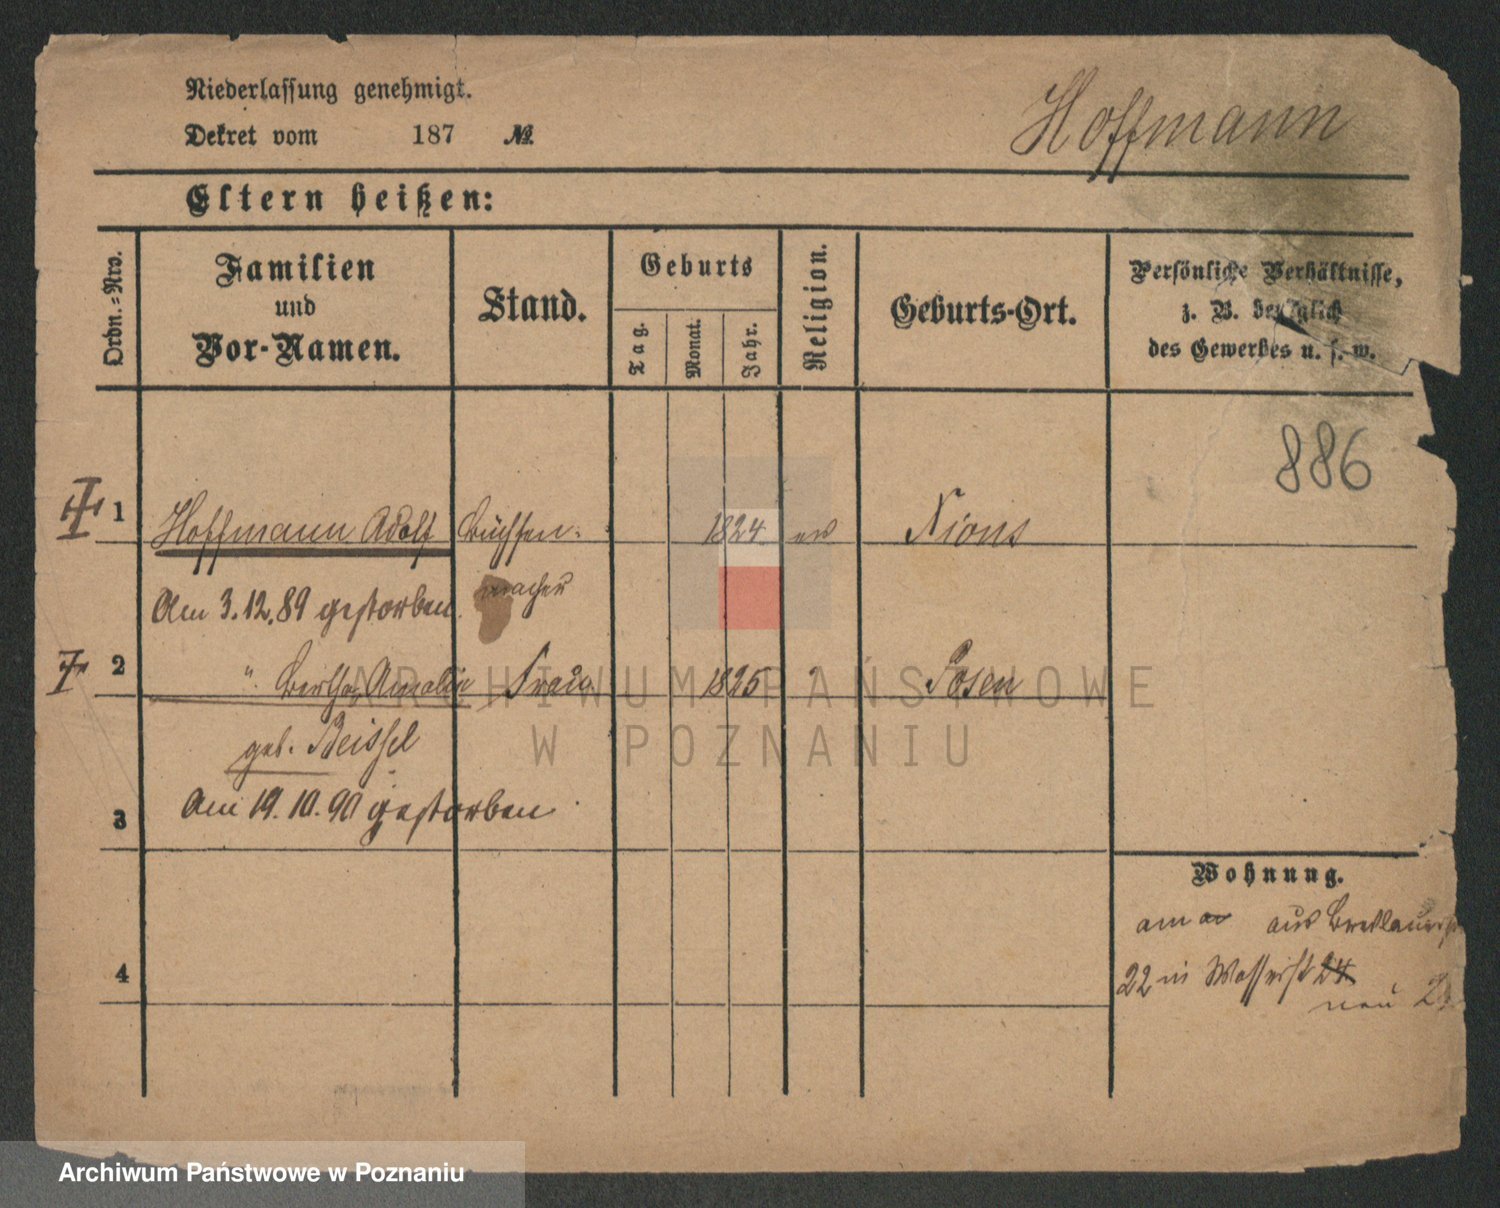 Niederlassung genehmigt.
Dekret vom 187 №
Hoffmann
Eltern heißen:
Ordn.-Nro.
Familien und Vor-Namen.
Stand.
Geburts
Tag.
Monat.
Jahr.
Religion.
Geburts-Ort.
Persönliche Verhältnisse,
z. B. bezüglich
des Gewerbes u. s. w.
886
1 Hoffmann Adolf Büchsen- 1824 ev
macher
Am 3.12.89 gestorben.
2 " Bertha Amalie Frau 1825 " Posen
geb. Beissel
Am 19.10.90 gestorben
3
Wohnung.
am aus Breslauerstr
22 in Wasserstr 24
neu
4
ARCHIWUM PAŃSTWOWE
W POZNANIU
Archiwum Państwowe w Poznaniu